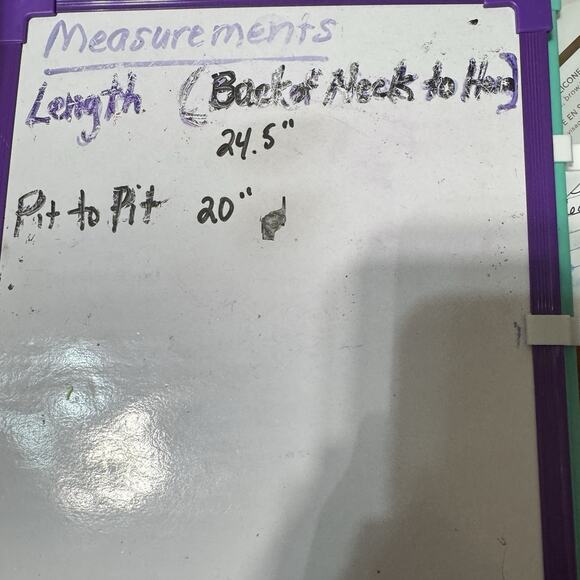 Measurements
Length (Back of Neck to Hem)
24.5"
Pit to Pit 20"